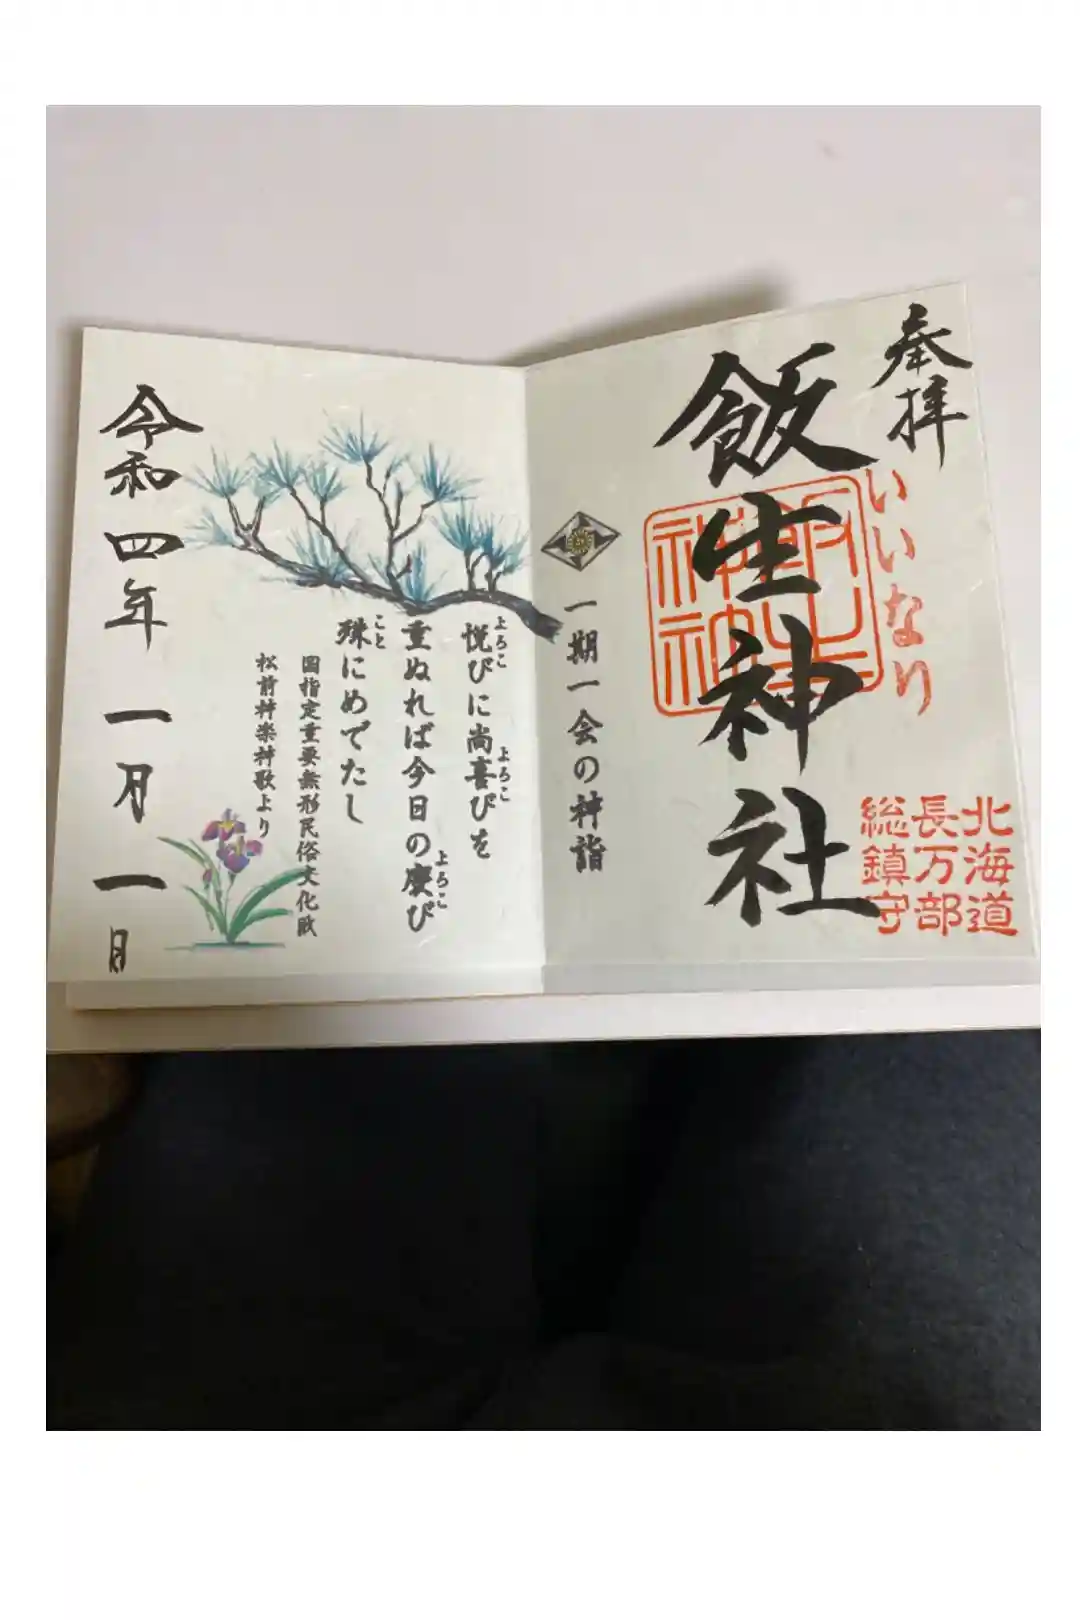 奉拝
いいなり
飯生神社
北海道
長万部
総鎮守
一期一会の神詣
悦びに尚喜びを
よろこ
よろこ
重ぬれば今日の慶び
よろこ
殊にめでたし
こと
国指定重要無形民俗文化財
松前神楽神歌より
令和四年一月一日